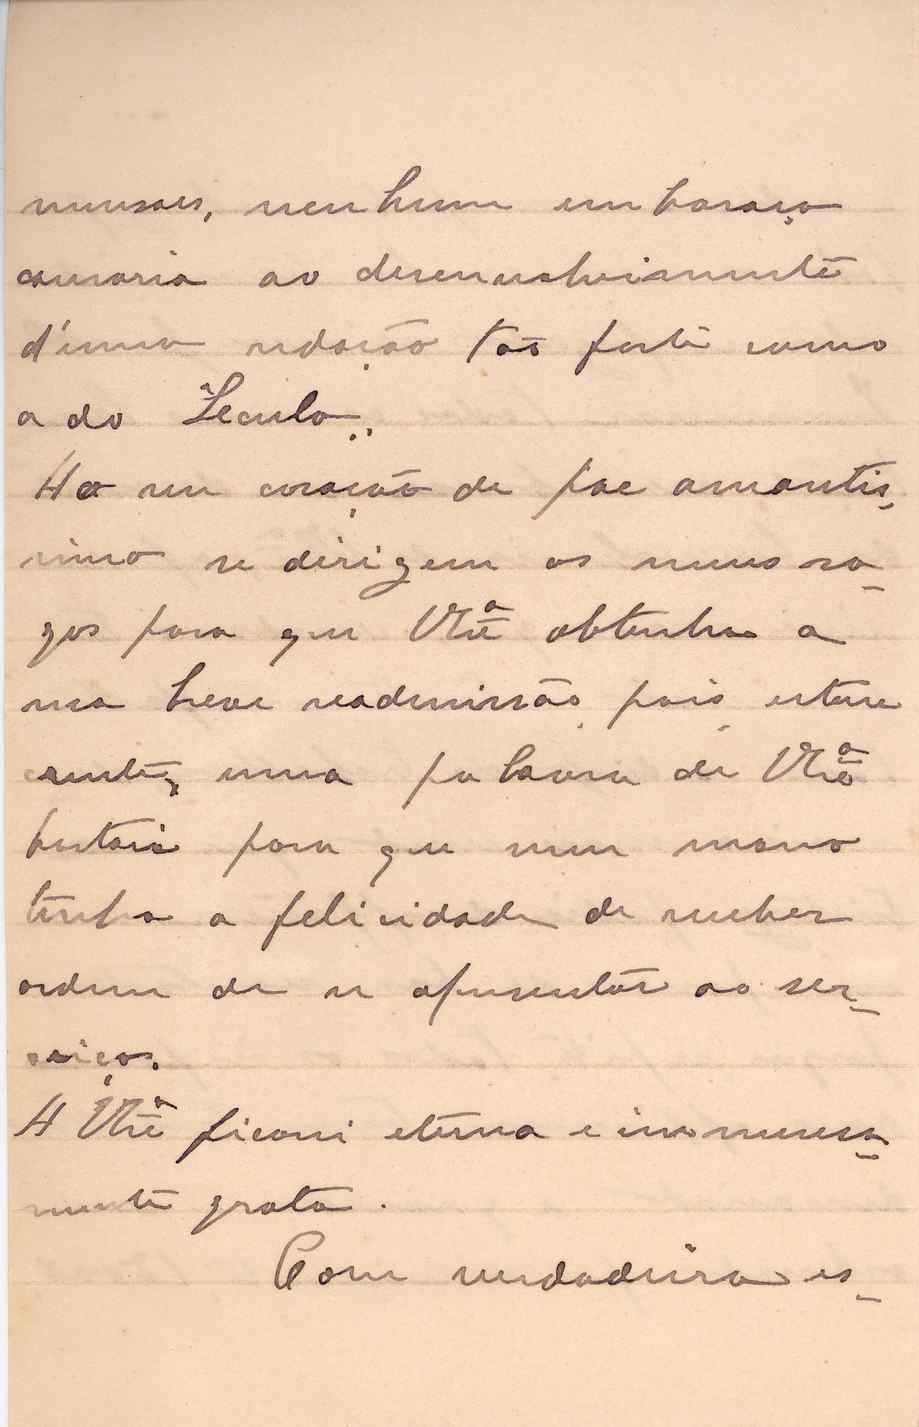 mensaes, nenhum embaraço
causaria ao desenvolvimento
d'uma redação tão forte como
a do Seculo.
Ao seu coração de pae amantis-
simo se dirigem os meus ro-
gos para que V. Exª obtenha a
sua breve readmissão, pois, estou
certa, uma palavra de V. Exª
bastará para que meu mano
tenha a felicidade de receber
ordem de se apresentar ao ser-
viço.
A V. Exª ficarei eterna e immensa-
mente grata.
Com verdadeira es-